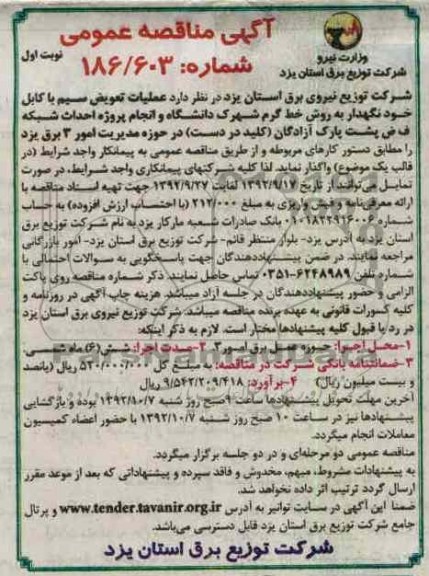 آگهی مناقصه عمومی
شماره: ۱۸۶/۶۰۳
نوبت اول
وزارت نیرو
شرکت توزیع برق استان یزد
شرکت توزیع نیروی برق استان یزد در نظر دارد عملیات تعویض سیم با کابل
خود نگهدار به روش خط گرم شهرک دانشگاه و انجام پروژه احداث شبکه
ف ض پشت پارک آزادگان (کلید در دست) در حوزه مدیریت امور ۳ برق یزد
را مطابق دستور کارهای مربوطه و از طریق مناقصه عمومی به پیمانکار واجد شرایط (در
قالب یک موضوع) واگذار نماید. لذا کلیه شرکتهای پیمانکاری واجد شرایط، در صورت
تمایل می‌توانند از تاریخ ۱۳۹۲/۹/۱۷ لغایت ۱۳۹۲/۹/۲۷ جهت تهیه اسناد مناقصه با
ارائه معرفی‌نامه و فیش واریزی به مبلغ ۲۱۲/۰۰۰ (با احتساب ارزش افزوده) به حساب
شماره ۰۱۰۱۸۲۲۹۱۶۰۰۶ بانک صادرات شعبه مارکار یزد به نام شرکت توزیع برق
استان یزد به آدرس یزد- بلوار منتظر قائم- شرکت توزیع برق استان یزد- امور بازرگانی
مراجعه نمایند. در ضمن پیشنهاددهندگان جهت پاسخگویی به سوالات احتمالی با
شماره تلفن ۶۲۴۸۹۸۹-۰۳۵۱ تماس حاصل نمایند. ذکر شماره مناقصه روی پاکت
الزامی و حضور پیشنهاددهندگان در جلسه آزاد میباشد. هزینه چاپ آگهی در روزنامه و
کلیه کسورات قانونی به عهده برنده مناقصه میباشد. شرکت توزیع نیروی برق استان یزد
در رد یا قبول کلیه پیشنهادها مختار است. لازم به ذکر اینکه:
۱-محل اجرا: حوزه عمل برق امور۳. ۲-مدت اجرا: شش(۶) ماه شمسی.
۳-ضمانتنامه بانکی شرکت در مناقصه: به مبلغ کل ۵۲۰/۰۰۰/۰۰۰ ریال (پانصد
و بیست میلیون ریال) ۴-برآورد: ۹/۵۴۲/۲۰۹/۴۱۸ ریال
آخرین مهلت تحویل پیشنهادها ساعت ۹صبح روز شنبه ۱۳۹۲/۱۰/۷ بوده و بازگشایی
پیشنهادها نیز در ساعت ۱۰ صبح روز شنبه ۱۳۹۲/۱۰/۷ با حضور اعضاء کمیسیون
معاملات انجام میگردد.
مناقصه عمومی دو مرحله‌ای و در دو جلسه برگزار میگردد.
به پیشنهادات مشروط، مبهم، مخدوش و فاقد سپرده و پیشنهاداتی که بعد از موعد مقرر
ارسال گردد ترتیب اثر داده نخواهد شد.
ضمنا این آگهی در سایت توانیر به آدرس www.tender.tavanir.org.ir و پرتال
جامع شرکت توزیع برق استان یزد قابل دسترسی می‌باشد.
شرکت توزیع برق استان یزد